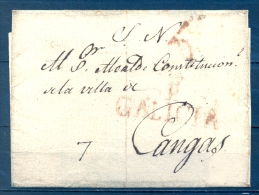 S. N.
Al Sr. Alcalde Constitucion.l
de la villa de
GALICIA
Cangas
7